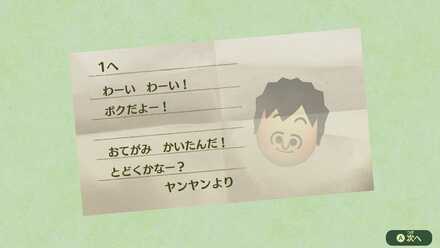 1へ
わーい　わーい！
ボクだよー！
おてがみ　かいたんだ！
とどくかなー？
ヤンヤンより
Ⓐ次へ